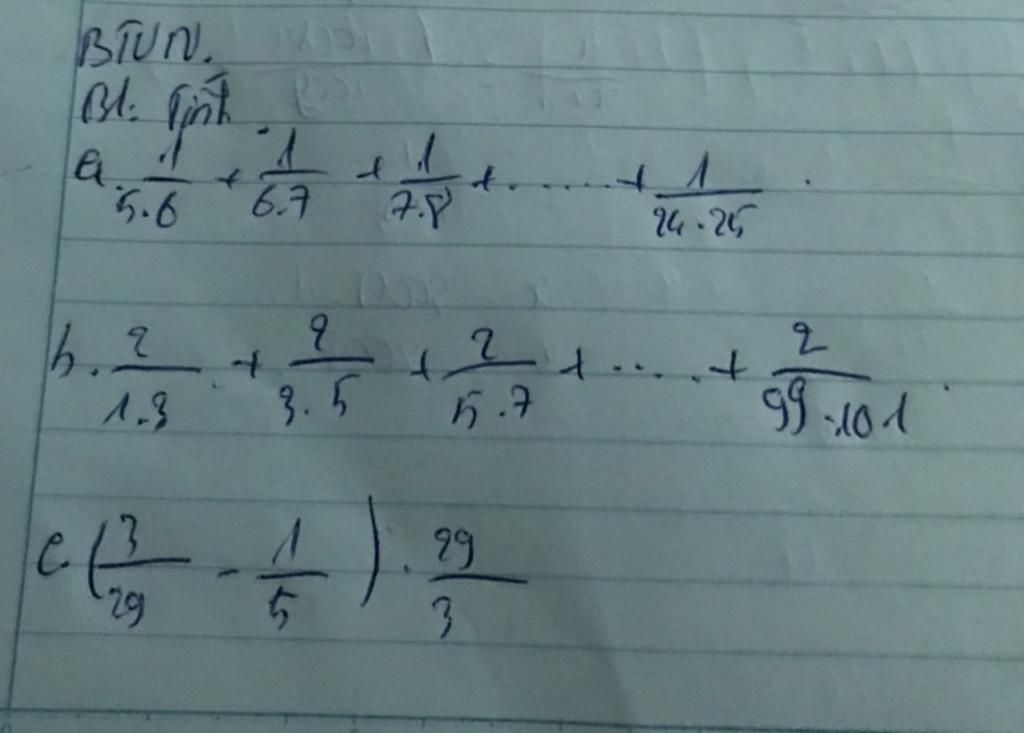 BTVN.
B1: Tính
a. 1/5.6 + 1/6.7 + 1/7.8 + ...... + 1/24.25 .
b. 2/1.3 + 2/3.5 + 2/5.7 + ..... + 2/99.101 .
c. (3/29 - 1/5) . 29/3